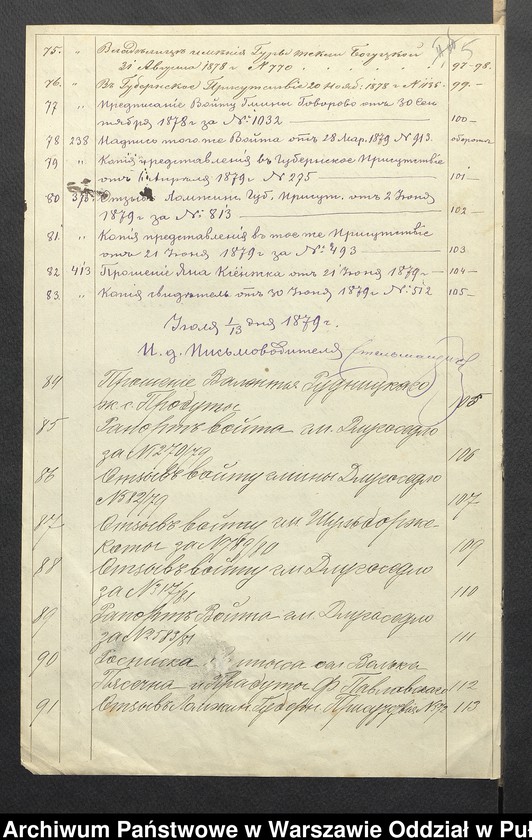 105
75. " Владѣлицѣ имѣнія Гуры Текли Богуцкой
31 Августа 1878 г № 770 97-98.
76. " Въ Губернское Присутствіе 20 Нояб. 1878 г № 1135. 99.
77 " Предписаніе Войту Гмины Говорово отъ 30 Сен
тября 1878 г за № 1032 100
78 238 Надпись того же Войта отъ 28 Мар. 1879 № 913. оборотъ
79 " Копія представленія въ Губернское Присутствіе
отъ Апрѣля 1879 г № 295 101
80 376 Отзывъ Ломжин. Губ. Присут. отъ 2 Іюня
1879 г за № 813 102
81. " Копія представленія въ то же Присутствіе
отъ 21 Іюня 1879 г за № 493 103
82 413 Прошеніе Яна отъ 21 Іюня 1879 г 104
83. " Копія свидѣтель. отъ 30 Іюня 1879 г № 512 105
Іюля 1/13 дня 1879 г.
И. д. Письмоводителя
84 Прошеніе Валентія Рудницкаго
изъ с. Прабуты 105
85 Рапортъ войта гм. Длугоседло
за № 270/79 106
86 Отзывъ войту гмины Длугоседло
№ 12/79 107
87 Отзывъ войту гм
за № 109
88 Отзывъ войту гм Длугоседло
за № 17/81 110
89 Рапортъ Войта гм. Длугоседло
за № 583/81 111
90 Росписка Волька
Пясечна и Прабуты Ф. Павловскаго 112
91 Отзывъ Ломжин. Губерн. Присутствія № 113
Archiwum Państwowe w Warszawie Oddział w Puł